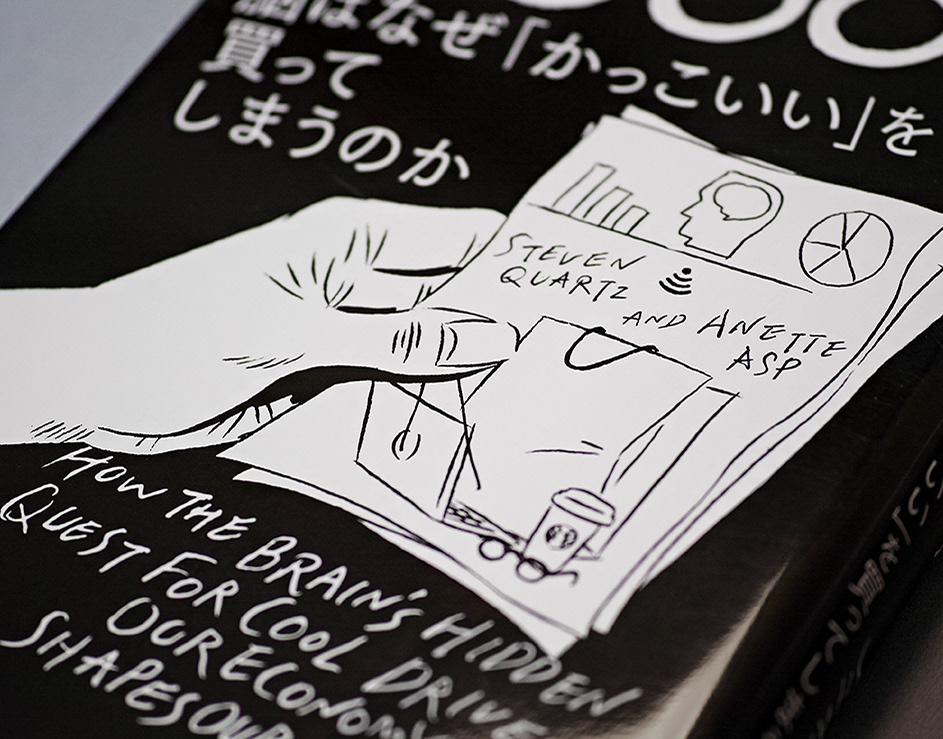 脳はなぜ「かっこいい」を
買って
しまうのか
STEVEN
QUARTZ
AND ANETTE
ASP
HOW THE BRAIN'S HIDDEN
QUEST FOR COOL DRIVE
OUR ECONOMY
SHAPES OUR